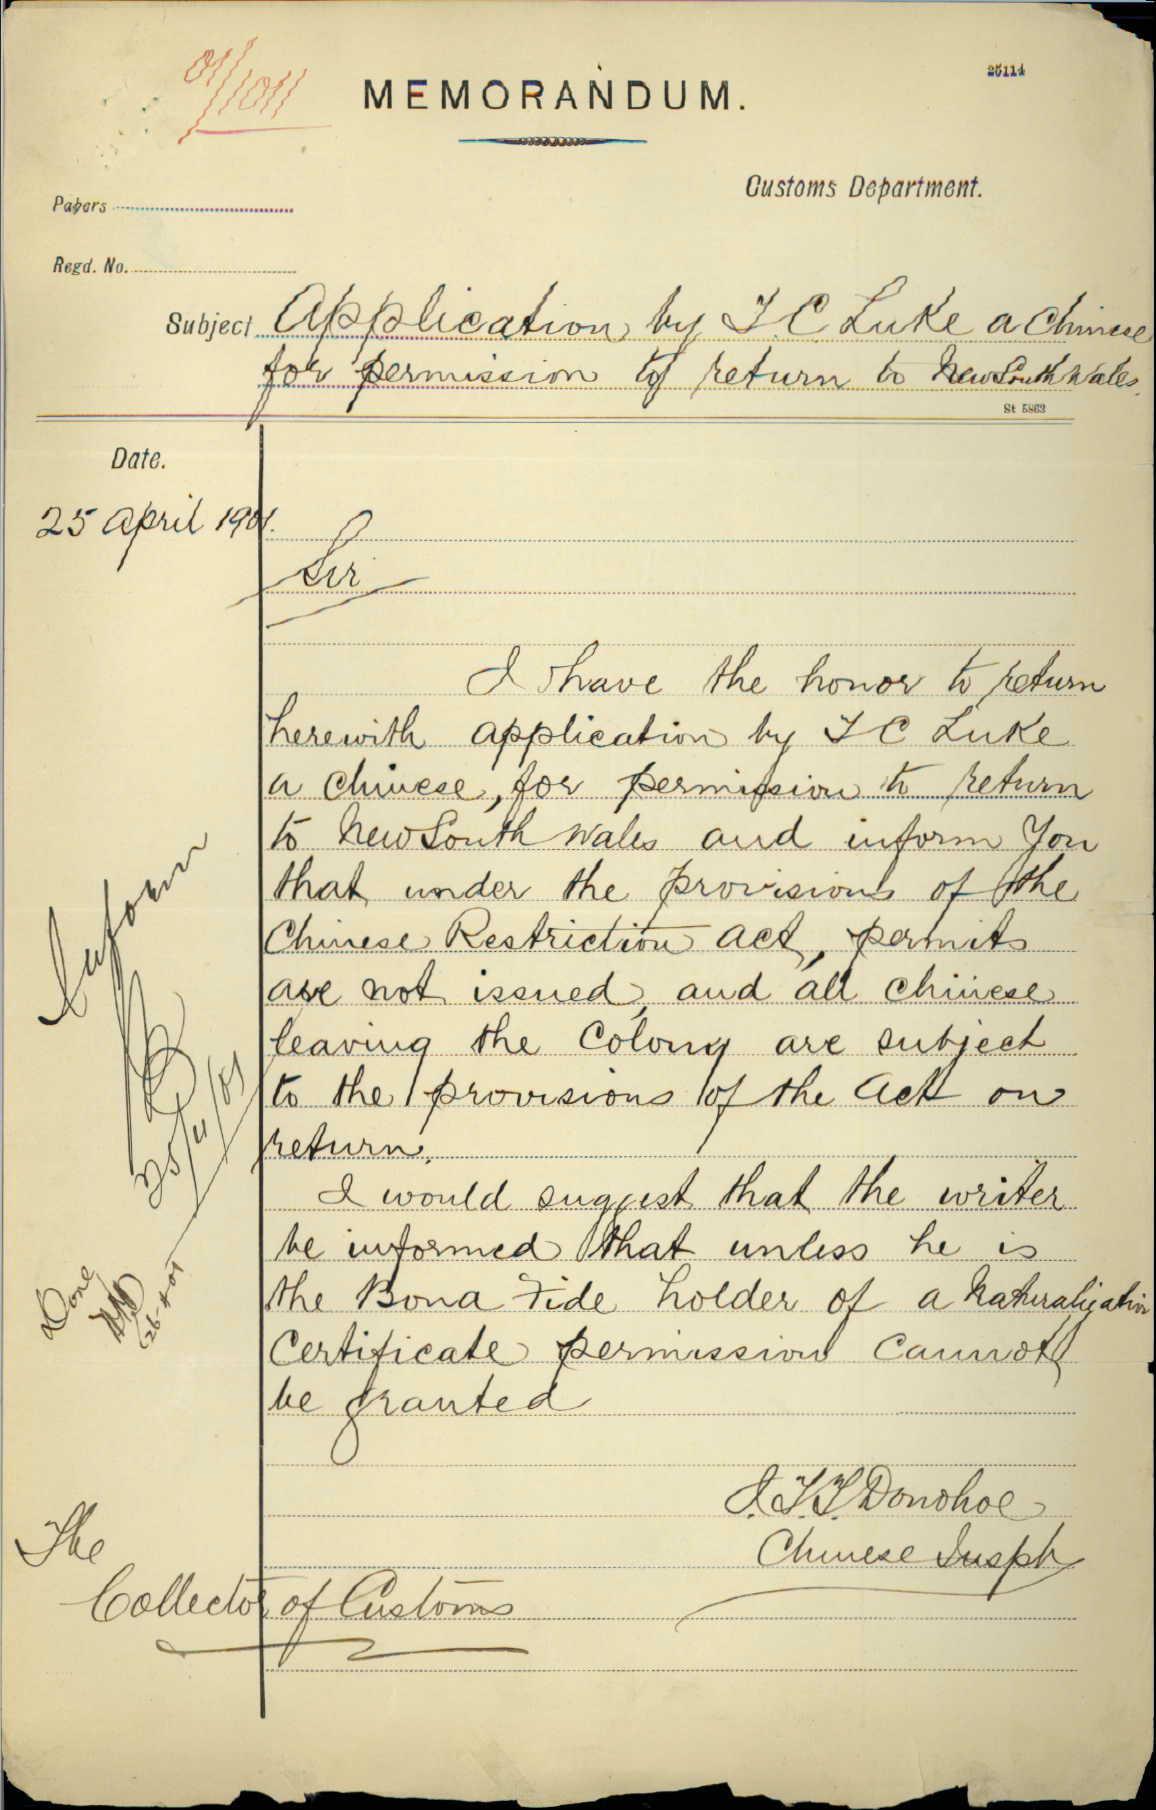 01/1011
25114
MEMORANDUM.
Customs Department.
Papers
Regd. No.
Subject Application by T. C. Luke a Chinese
for permission to return to New South Wales.
St 5863
Date.
25 April 1901.
Sir
I have the honor to return
herewith application by T C Luke
a Chinese, for permission to return
to New South Wales and inform you
that under the provisions of the
Chinese Restriction Act, permits
are not issued, and all Chinese
leaving the Colony are subject
to the provisions of the Act on
return.
I would suggest that the writer
be informed that unless he is
the Bona Fide holder of a Naturalization
Certificate permission cannot
be granted
J. T. T. Donohoe
Chinese Inspt
The
Collector of Customs
Inform
25/4/01
Done
26-4-01